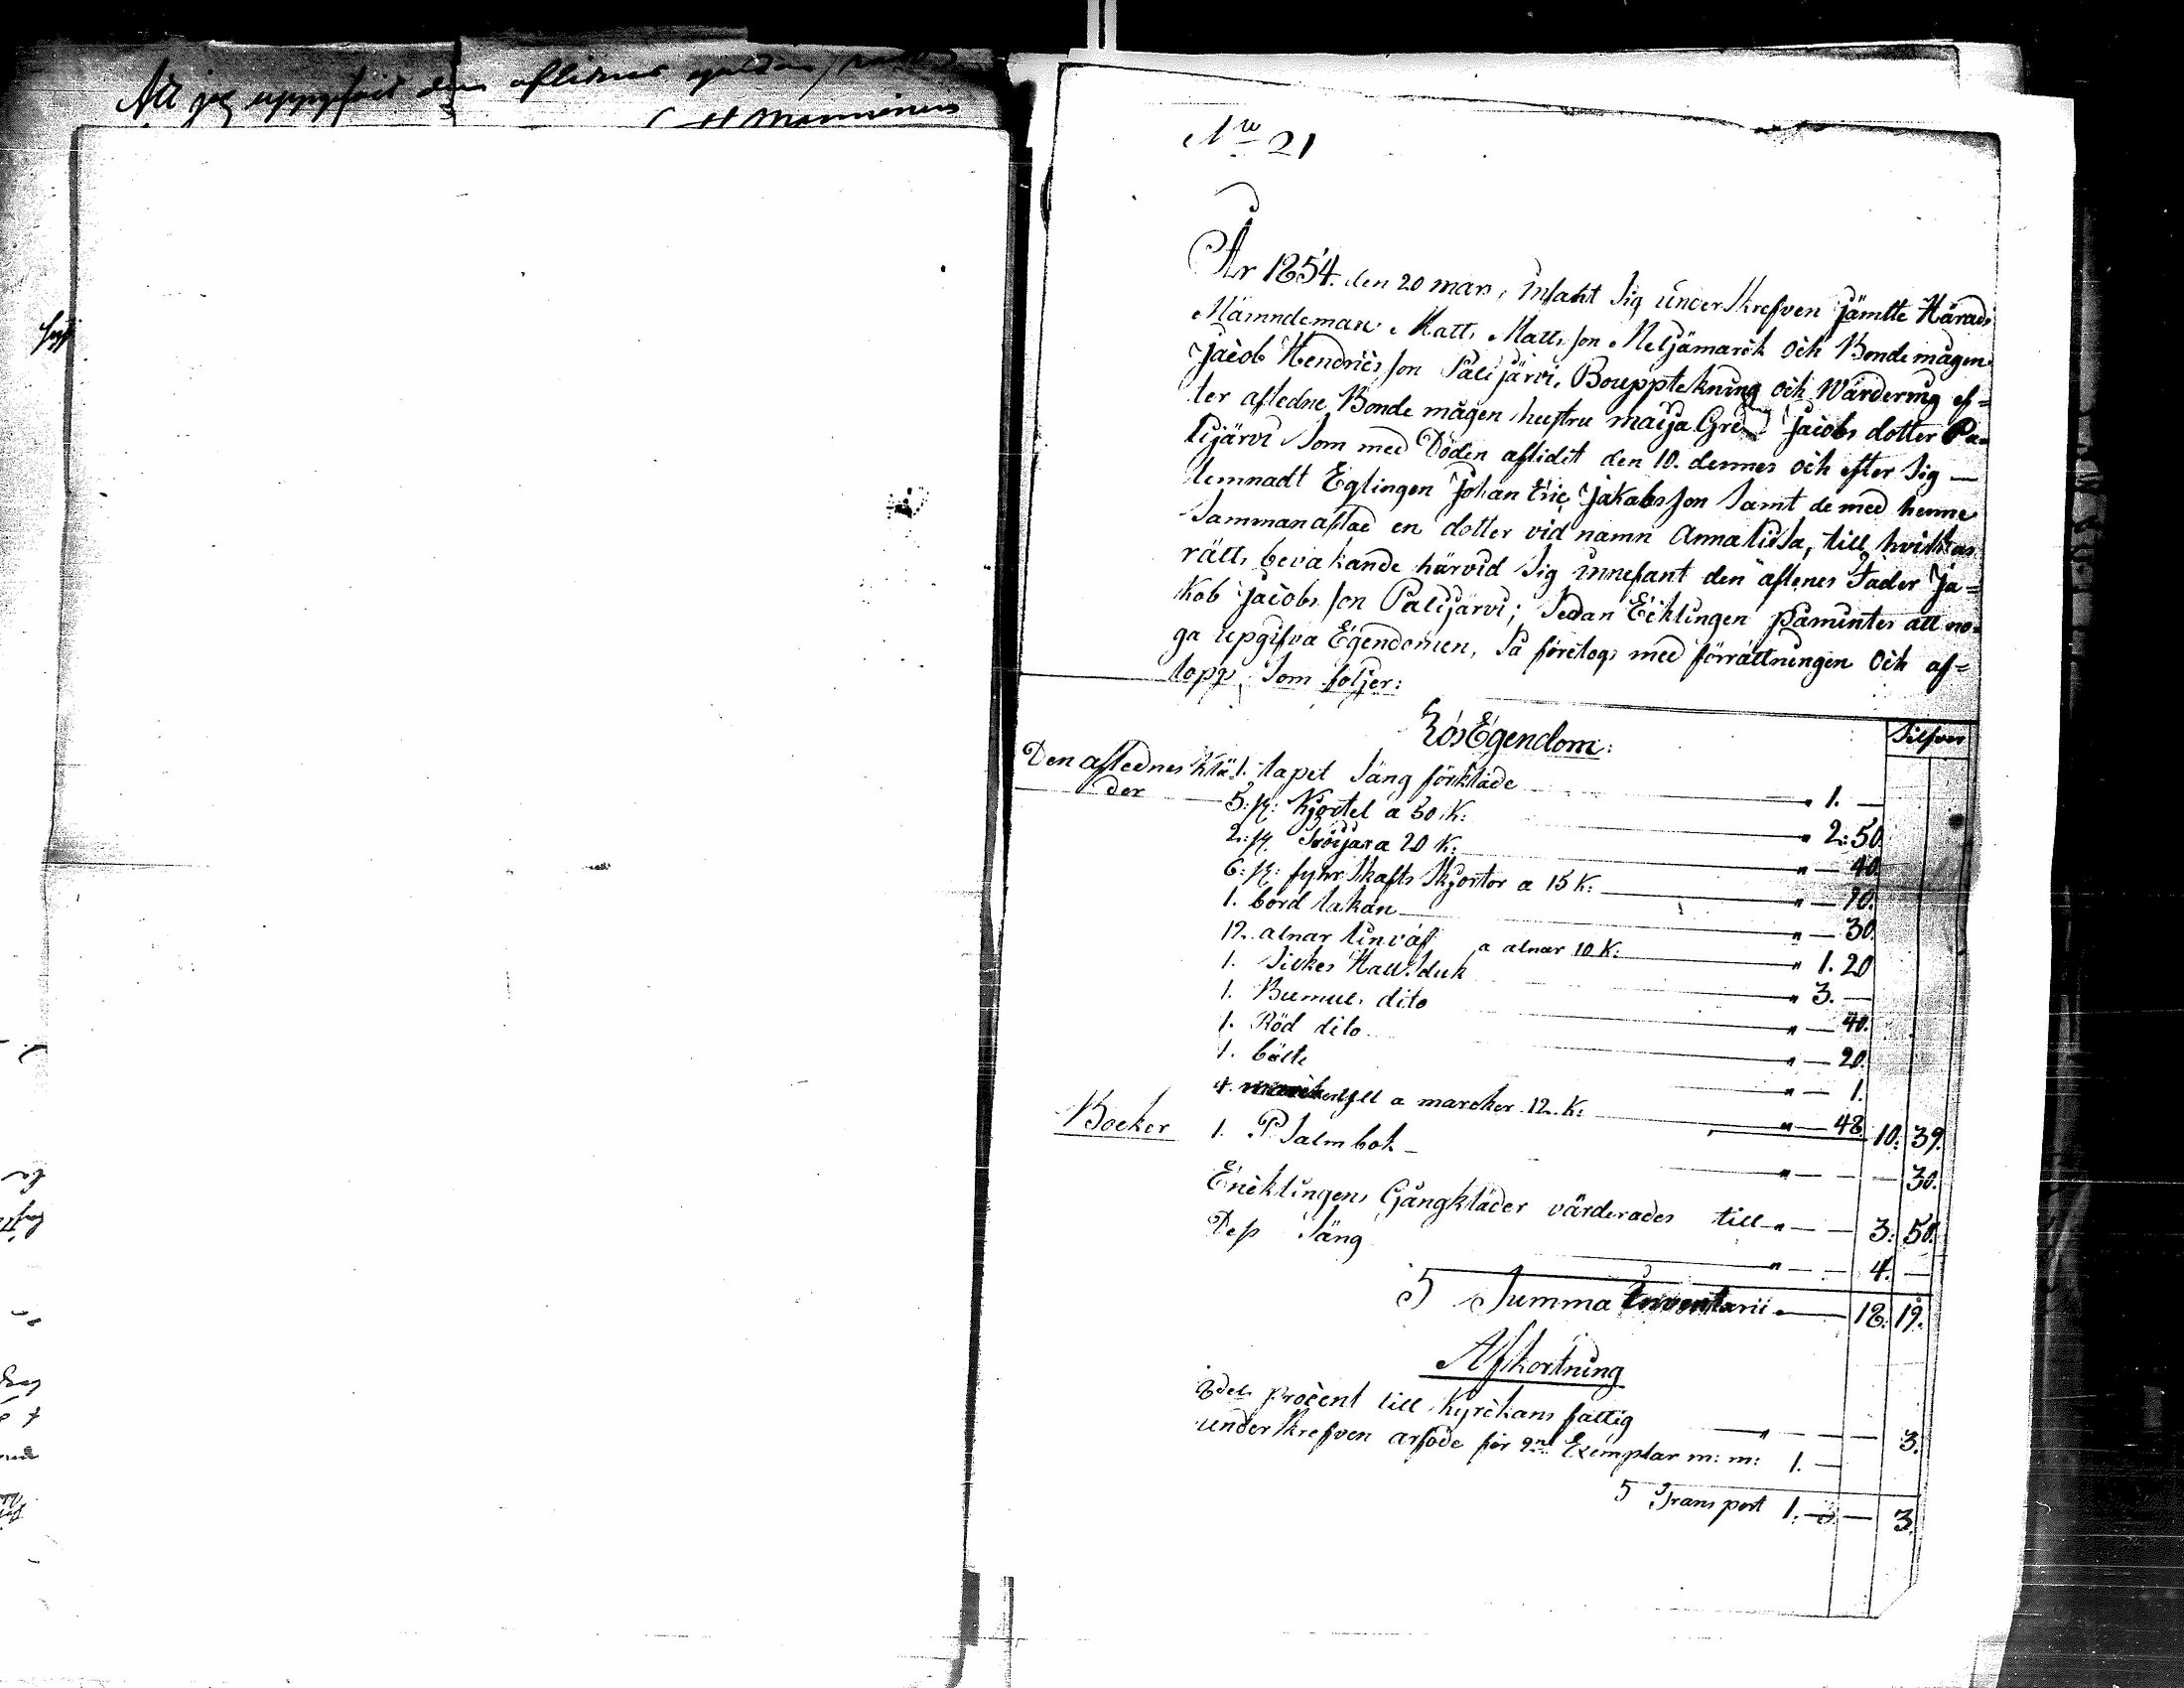 Att jag uppgifvit den aflidnes
Manninens
No 21
År 1854. den 20 mars, infant Sig underSkrefven jämte Härads
Nämndeman Matts Mattsson Neljämarck och Bondemågen
Jacob Hendricsson Palijärvi, Bouppteknùng och Wärdering ef=
ter afledne Bonde mågen hustru maija Greta Jacobs dotter Pa=
lijärvi Som med Döden aflidit den 10. dennes och efter Sig —
lemnadt Eglingen Johan Eric Jakobsson Samt de med henne
Sammanaflad en dotter vid namn Anna Lissa, till hvilkas
rätts bevakande härvid Sig innefant den aflenes Fader Ja=
kob Jacobsson Palijärvi; Sedan Eicklingen påmintes att no=
ga upgifva Egendomen, Så företogs med förrättningen och af=
lopp Som följer:
Lös Egendom:
Silfver
Den aflednes klä= 1. tapet Säng förkläde " 1. —
der 5: st: Kjortel a 50 K: " 2: 50.
2: st. Tröijar a 20 K: " — 40.
6: st: fyhr Skafts Skjortor a 15 K: " — 90.
1. bord lakan " — 30.
12. alnar linväf a alnar 10 K: " 1. 20
1. Silkes Halsduk " 3. —
1. Bumuls dito " — 40.
1. Röd dito " — 20.
1. bälte " — 1.
4. ull a marcker 12. K: " — 48 10: 39.
Böcker 1. Psalmbok " — — 30.
Enicklingens Gångkläder värderades till " — — 3: 50.
Dess Säng " — — 4. —
S Summa Inventarii 18: 19.
Afkortning
procent till Kyrckans fattig " — — 3.
underSkrefven arfode för 2ne Exemplar m: m: 1. —
S Transport 1. — — 3.